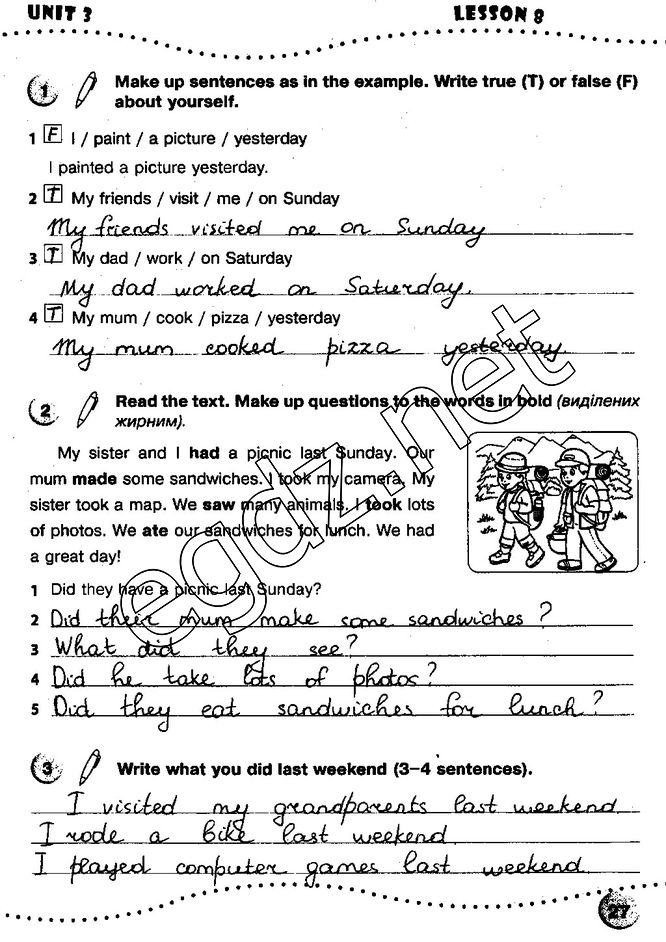 UNIT 3 LESSON 8
1 Make up sentences as in the example. Write true (T) or false (F)
about yourself.
1 F I / paint / a picture / yesterday
I painted a picture yesterday.
2 T My friends / visit / me / on Sunday
My friends visited me on Sunday
3 T My dad / work / on Saturday
My dad worked on Saturday.
4 T My mum / cook / pizza / yesterday
My mum cooked pizza yesterday.
2 Read the text. Make up questions to the words in bold (виділених
жирним).
My sister and I had a picnic last Sunday. Our
mum made some sandwiches. I took my camera. My
sister took a map. We saw many animals. I took lots
of photos. We ate our sandwiches for lunch. We had
a great day!
1 Did they have a picnic last Sunday?
2 Did their mum make some sandwiches?
3 What did they see?
4 Did he take lots of photos?
5 Did they eat sandwiches for lunch?
3 Write what you did last weekend (3–4 sentences).
I visited my grandparents last weekend.
I rode a bike last weekend.
I played computer games last weekend.
27
egdz.net